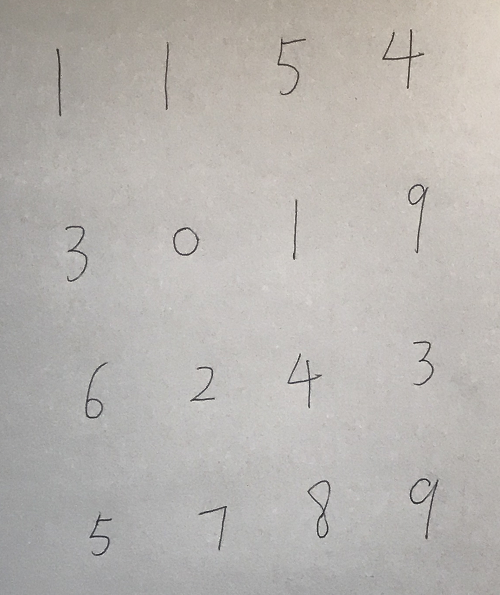 1 1 5 4
3 0 1 9
6 2 4 3
5 7 8 9